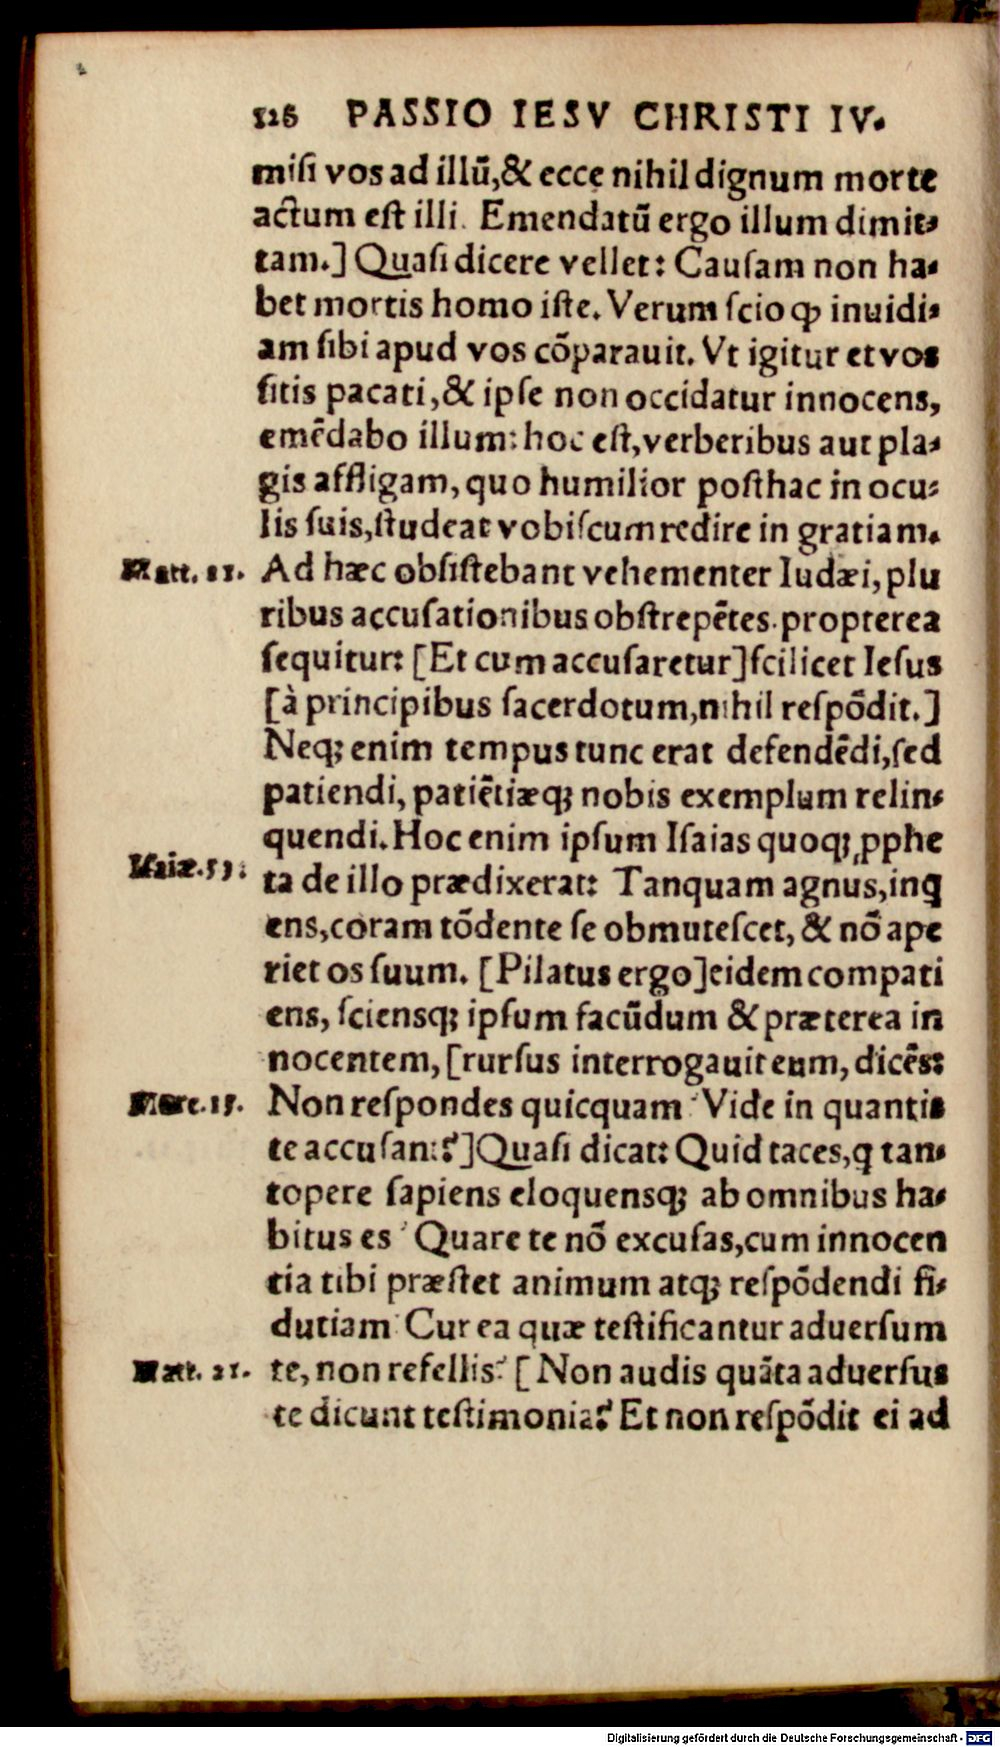 128 PASSIO IESV CHRISTI IV.
misi vos ad illũ,& ecce nihil dignum morte
actum est illi. Emendatũ ergo illum dimit-
tam.] Quasi dicere vellet: Causam non ha-
bet mortis homo iste. Verum scio ꝙ inuidi-
am sibi apud vos cõparauit. Vt igitur et vos
sitis pacati,& ipse non occidatur innocens,
emẽdabo illum: hoc est, verberibus aut pla-
gis affligam, quo humilior posthac in ocu-
lis suis, studeat vobiscum redire in gratiam.
Matt. Ad hæc obsistebant vehementer Iudæi, plu
ribus accusationibus obstrepẽtes. propterea
sequitur: [Et cum accusaretur] scilicet Iesus
[à principibus sacerdotum, nihil respõdit.]
Neq; enim tempus tunc erat defendẽdi, sed
patiendi, patiẽtiæq; nobis exemplum relin-
quendi. Hoc enim ipsum Isaias quoq; ꝓphe
Isaiæ.53. ta de illo prædixerat: Tanquam agnus, inq
ens, coram tõdente se obmutescet, & nõ ape
riet os suum. [Pilatus ergo] eidem compati
ens, sciensq; ipsum facũdum & præterea in
nocentem, [rursus interrogauit eum, dicẽs:
Marc.15. Non respondes quicquam? Vide in quantis
te accusant?] Quasi dicat: Quid taces, q tan-
topere sapiens eloquensq; ab omnibus ha-
bitus es? Quare te nõ excusas, cum innocen
tia tibi præstet animum atq; respõdendi fi-
dutiam? Cur ea quæ testificantur aduersum
Matt. te, non refellis? [Non audis quãta aduersus
te dicunt testimonia? Et non respõdit ei ad
Digitalisierung gefördert durch die Deutsche Forschungsgemeinschaft - DFG